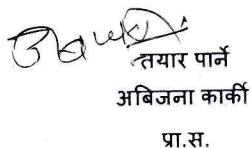 तयार पार्ने
अबिजना कार्की
प्रा.स.